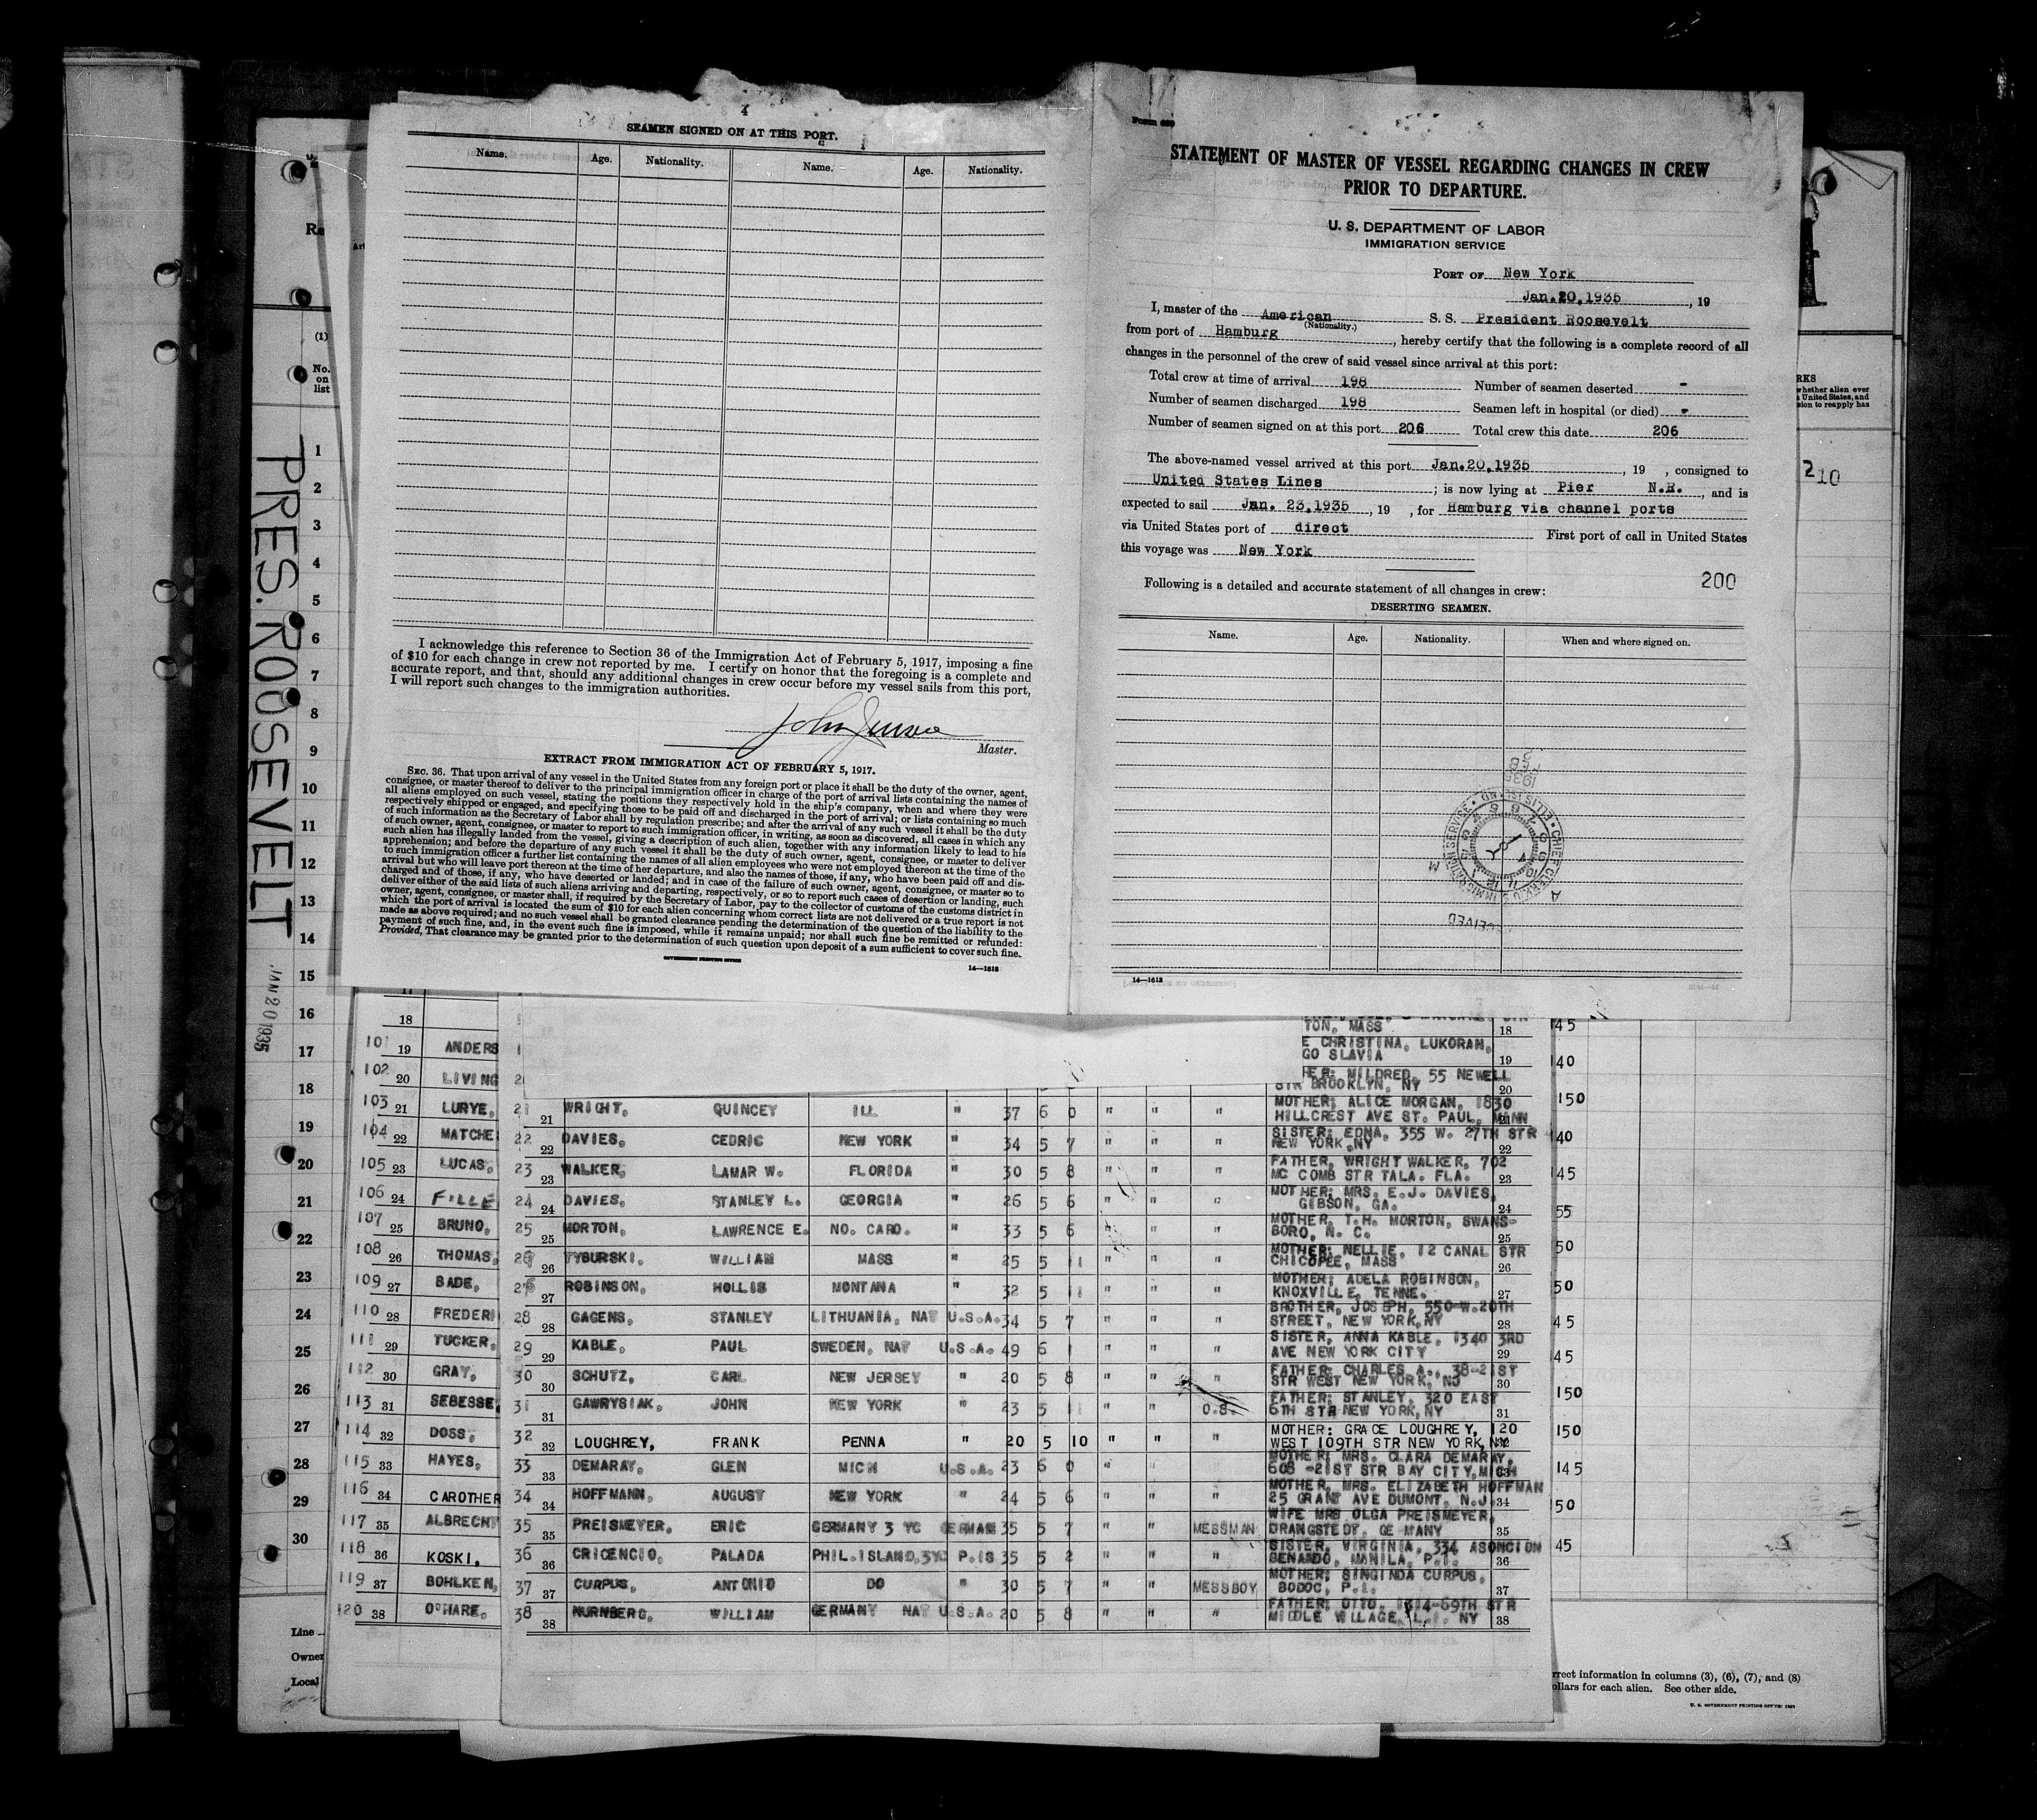 4
SEAMEN SIGNED ON AT THIS PORT.
Name. Age. Nationality. Name. Age. Nationality.
I acknowledge this reference to Section 36 of the Immigration Act of February 5, 1917, imposing a fine
of $10 for each change in crew not reported by me. I certify on honor that the foregoing is a complete and
accurate report, and that, should any additional changes in crew occur before my vessel sails from this port,
I will report such changes to the immigration authorities.
Master.
EXTRACT FROM IMMIGRATION ACT OF FEBRUARY 5, 1917.
SEC. 36. That upon arrival of any vessel in the United States from any foreign port or place it shall be the duty of the owner, agent,
consignee, or master thereof to deliver to the principal immigration officer in charge of the port of arrival lists containing the names of
all aliens employed on such vessel, stating the positions they respectively hold in the ship's company, when and where they were
respectively shipped or engaged, and specifying those to be paid off and discharged in the port of arrival; or lists containing so much
of such information as the Secretary of Labor shall by regulation prescribe; and after the arrival of any such vessel it shall be the duty
of such owner, agent, consignee, or master to report to such immigration officer, in writing, as soon as discovered, all cases in which any
such alien has illegally landed from the vessel, giving a description of such alien, together with any information likely to lead to his
apprehension; and before the departure of any such vessel it shall be the duty of such owner, agent, consignee, or master to deliver
to such immigration officer a further list containing the names of all alien employees who were not employed thereon at the time of the
arrival but who will leave port thereon at the time of her departure, and also the names of those, if any, who have been paid off and dis-
charged and of those, if any, who have deserted or landed; and in case of the failure of such owner, agent, consignee, or master so to
deliver either of the said lists of such aliens arriving and departing, respectively, or so to report such cases of desertion or landing, such
owner, agent, consignee, or master shall, if required by the Secretary of Labor, pay to the collector of customs of the customs district in
which the port of arrival is located the sum of $10 for each alien concerning whom correct lists are not delivered or a true report is not
made as above required; and no such vessel shall be granted clearance pending the determination of the question of the liability to the
payment of such fine, and, in the event such fine is imposed, while it remains unpaid; nor shall such fine be remitted or refunded:
Provided, That clearance may be granted prior to the determination of such question upon deposit of a sum sufficient to cover such fine.
GOVERNMENT PRINTING OFFICE
14—1613
STATEMENT OF MASTER OF VESSEL REGARDING CHANGES IN CREW
PRIOR TO DEPARTURE.
U. S. DEPARTMENT OF LABOR
IMMIGRATION SERVICE
PORT OF New York
Jan.20,1935, 19
I, master of the American S. S. President Roosevelt
(Nationality.)
from port of Hamburg, hereby certify that the following is a complete record of all
changes in the personnel of the crew of said vessel since arrival at this port:
Total crew at time of arrival 198 Number of seamen deserted -
Number of seamen discharged 198 Seamen left in hospital (or died) -
Number of seamen signed on at this port 206 Total crew this date 206
The above-named vessel arrived at this port Jan.20,1935, 19 , consigned to
United States Lines; is now lying at Pier N.R., and is
expected to sail Jan. 23,1935, 19 , for Hamburg via channel ports
via United States port of direct First port of call in United States
this voyage was New York
200
Following is a detailed and accurate statement of all changes in crew:
DESERTING SEAMEN.
Name. Age. Nationality. When and where signed on.
14—1613
PRES. ROOSEVELT
JAN 20 1935
(1)
No.
on
list
1
2
3
4
5
6
7
8
9
10
11
12
13
14
15
16
17
18
19
20
21
22
23
24
25
26
27
28
29
30
Line
Owner
Local
210
18
101 19 ANDERS
102 20 LIVING
103 21 LURYE,
104 22 MATCHE
105 23 LUCAS,
106 24 FILLE
107 25 BRUNO,
108 26 THOMAS,
109 27 BADE,
110 28 FREDERI
111 29 TUCKER,
112 30 GRAY,
113 31 SEBESSE
114 32 DOSS,
115 33 HAYES,
116 34 CAROTHER
117 35 ALBRECHT
118 36 KOSKI,
119 37 BOHLKEN,
120 38 O'HARE,
TON, MASS 18
E CHRISTINA, LUKORAN,
GO SLAVIA 19
HER; MILDRED, 55 NEWELL
STR BROOKLYN, NY 20
21 21 WRIGHT, QUINCEY ILL " 37 6 0 " " " MOTHER; ALICE MORGAN, 1830
HILLCREST AVE ST. PAUL, MINN 21
22 22 DAVIES, CEDRIC NEW YORK " 34 5 7 " " " SISTER; EDNA, 355 W. 27TH STR
NEW YORK,NY 22
23 23 WALKER, LAMAR W. FLORIDA " 30 5 8 " " " FATHER, WRIGHT WALKER, 702
MC COMB STR TALA. FLA. 23
24 24 DAVIES, STANLEY L. GEORGIA " 26 5 6 " " " MOTHER; MRS. E.J. DAVIES,
GIBSON, GA. 24
25 25 MORTON, LAWRENCE E. NO. CARO. " 33 5 6 " " " MOTHER, T.H. MORTON, SWANS-
BORO, N. C. 25
26 26 TYBURSKI, WILLIAM MASS " 25 5 11 " " " MOTHER; NELLIE, 12 CANAL STR
CHICOPEE, MASS 26
27 ROBINSON, HOLLIS MONTANA " 32 5 11 " " " MOTHER; ADELA ROBINSON,
KNOXVILLE, TENNE. 27
28 28 GAGENS, STANLEY LITHUANIA, NAT U.S.A. 34 5 7 " " " BROTHER, JOSEPH, 550-W.20TH
STREET, NEW YORK,NY 28
29 29 KABLE, PAUL SWEDEN, NAT U.S.A. 49 6 1 " " " SISTER, ANNA KABLE, 1340 3RD
AVE NEW YORK CITY 29
30 30 SCHUTZ, CARL NEW JERSEY " 20 5 8 " " " FATHER; CHARLES A., 38-21ST
STR WEST NEW YORK, NJ 30
31 31 GAWRYSIAK, JOHN NEW YORK " 23 5 11 " " O.S. FATHER; STANLEY, 320 EAST
6TH STR NEW YORK,NY 31
32 32 LOUGHREY, FRANK PENNA " 20 5 10 " " " MOTHER: GRACE LOUGHREY, 120
WEST 109TH STR NEW YORK,NY 32
33 33 DEMARAY, GLEN MICH U.S.A. 23 6 0 " " MOTHER; MRS. CLARA DEMARAY,
608 -21ST STR BAY CITY,MICH 33
34 34 HOFFMANN, AUGUST NEW YORK " 24 5 6 " " " MOTHER, MRS. ELIZABETH HOFFMAN
25 GRANT AVE DUMONT, N.J. 34
35 35 PREISMEYER, ERIC GERMANY 3 YC GERMAN 35 5 7 " " MESSMAN WIFE MRS OLGA PREISMEYER,
DRANGSTEDY, GE MANY 35
36 36 CRICENCIO, PALADA PHIL.ISLAND,3YC P.IS 35 5 2 " " " SISTER, VIRGINIA, 334 ASONCION
BENANDO, MANILA, P.I. 36
37 37 CURPUS, ANTONIO DO " 30 5 7 " " MESSBOY MOTHER; SINGINDA CURPUS,
BODOC, P.I. 37
38 38 NURNBERG, WILLIAM GERMANY NAT U.S.A. 20 5 8 " " " FATHER; OTTO, 1614-69TH STR
MIDDLE VILLAGE, L.I. NY 38
RKS
whether alien ever
United States, and
sion to reapply has
45
40
150
40
45
55
50
50
45
45
150
150
150
145
50
45
rrect information in columns (3), (6), (7), and (8)
ollars for each alien. See other side.
U. S. GOVERNMENT PRINTING OFFICE